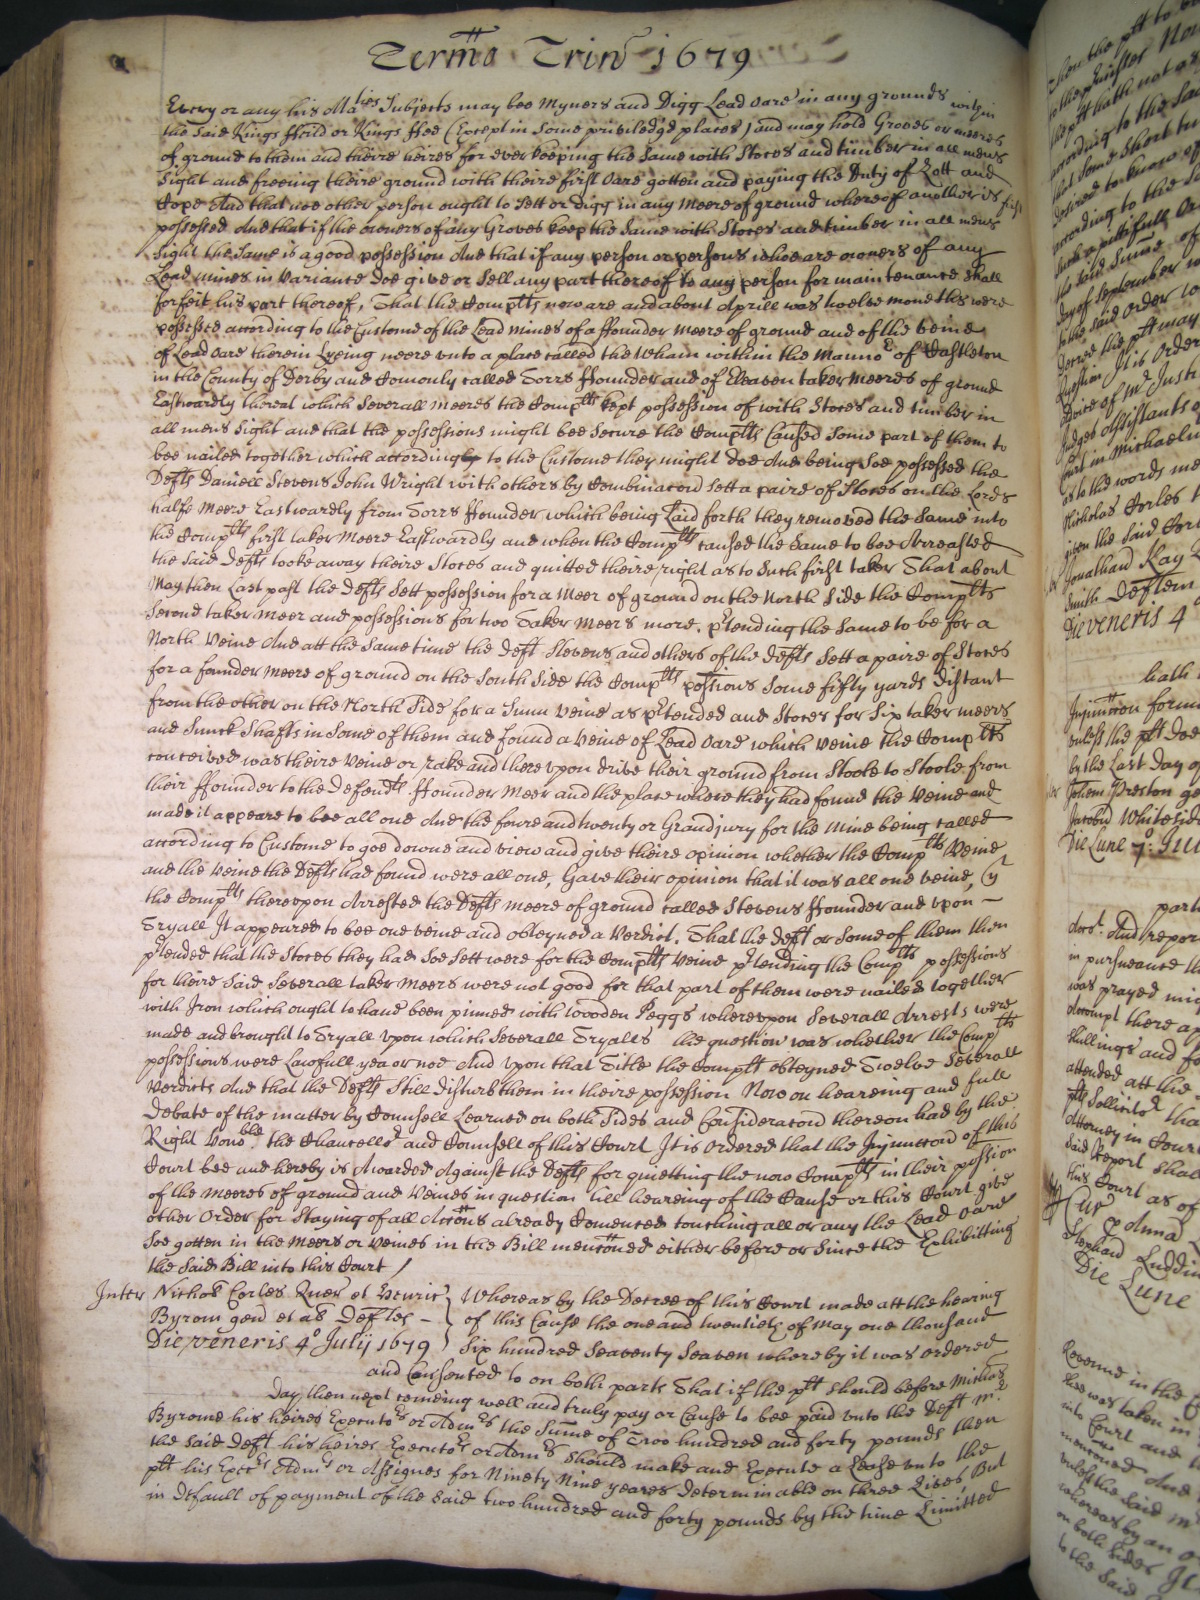 Termo Trin 1679
Every or any his Maties Subjects may bee Myners and Digg Lead oare in any grounds within
the said Kings ffeild or Kings ffee (Except in some priviledg'd places) and may hold Groves or meeres
of ground to them and theire heires for ever keeping the same with Stoces and timber in all mens
sight and freeing theire ground with theire first oare gotten and paying the duty of Lott and
Cope And that noe other person ought to sett or digg in any Meere of ground whereof another is first
possessed And that if the owners of any Groves keep the same with Stoces and timber in all mens
sight the same is a good possession And that if any person or persons who are owners of any
Lead mines in Variance doe give or sell any part thereof to any person for maintenance shall
forfeit his part thereof, That the Complts now are and about Aprill was twelve moneths were
possesse according to the Custome of the Lead mines of a ffounder meere of ground and of the veine
of Lead oare therein Lyeing neere unto a place called the Wham within the Mannor of Castleton
in the County of Derby and Comonly called Torrs ffounder and of Eleaven taker meeres of ground
Eastwardly thereat which severall meeres the Complts kept possession of with Stoces and timber in
all mens sight and that the possessions might bee secure the Complts Caused some part of them to
bee nailed together which according to the Custome they might doe And being soe possessed the
Defts Daniell Stevens John Wright with others by Combinacon sett a paire of Stoces on the Lords
halfe meere Eastwardly from Torrs ffounder which being Laid forth they removed the same into
the Complts first taker Meere Eastwardly and when the Complts caused the same to bee Arreasted
the said Defts tooke away theire Stoces and quitted theire right as to such first taker That about
May then Last past the Defts sett possession for a Meer of ground on the North side the Complts
second taker meer and possessions for two Taker Meers more, p'tending the same to be for a
North Veine And att the same time the Deft Stevens and others of the Defts sett a paire of Stoces
for a founder meere of ground on the South side the Complts possions some fifty yards distant
from the other on the North side for a Sunn Veine as p'tended and Stoces for six taker meers
and sunck shafts in some of them and found a veine of Lead oare which veine the Complts
conceived was theire Veine or rake and thereupon drive their ground from Stoole to Stoole from
their ffounder to the Defendts ffounder Meer and the place where they had found the Veine and
made it appeare to bee all one And the foure and twenty or Grandjury for the Mine being called
according to Custome to goe downe and view and give theire opinion whether the Complts Veine
and the Veine the Defts had found were all one, Gave their opinion that it was all one veine,
the Complts thereupon Arrested the Defts meere of ground called Stevens ffounder and upon
Tryall It appeared to bee one veine and obteyned a Verdict. That the Deft or some of them then
p'tended that the Stoces they had soe sett were for the Complts Veine p'tending the Complts possessions
for theire said severall taker Meers were not good for that part of them were nailed together
with Iron which ought to have been pinned with wooden Peggs whereupon severall Arrests were
made and brought to Tryall upon which severall Tryalls the question was whether the Complts
possessions were Lawfull yea or noe And upon that Title the Complt obteyned Twelve severall
Verdicts And that the Defts still disturb them in theire possession Now on heareing and full
debate of the matter by Counsell Learned on both sides and Consideracon thereon had by the
Right Honoble the Chancellor and Counsell of this Court It is ordered that the Injunccon of this
Court bee and hereby is Awarded Against the Defts for quietting the now Complts in their possion
of the meeres of ground and Veines in question till heareing of the Cause or this Court give
other Order for staying of all Accons already Comenced touching all or any the Lead oare
soe gotten in the meers or veines in the Bill mencioned either before or since the Exhibitting
the said Bill into this Court
Inter Nichos Corles Quer et Henric
Byrom gen et als Deftes
Die veneris 4o July 1679
Whereas by the Decree of this Court made att the hearing
of this Cause the one and twentieth of May one thousand
Six hundred Seaventy Seaven whereby it was ordered
and Consented to on both parts That if the plt should before Michas
Day then next comeing well and truly pay or Cause to bee paid unto the Deft Mr
Byrome his heires Executors or Admrs the Sume of Two hundred and forty pounds then
the said Deft his heires Executors or Admrs should make and Execute a Lease unto the
plt his Execrs Admrs or Assignes for Ninety Nine yeares Determinable on three Lives, But
in Default of payment of the said two hundred and forty pounds by the time Limitted